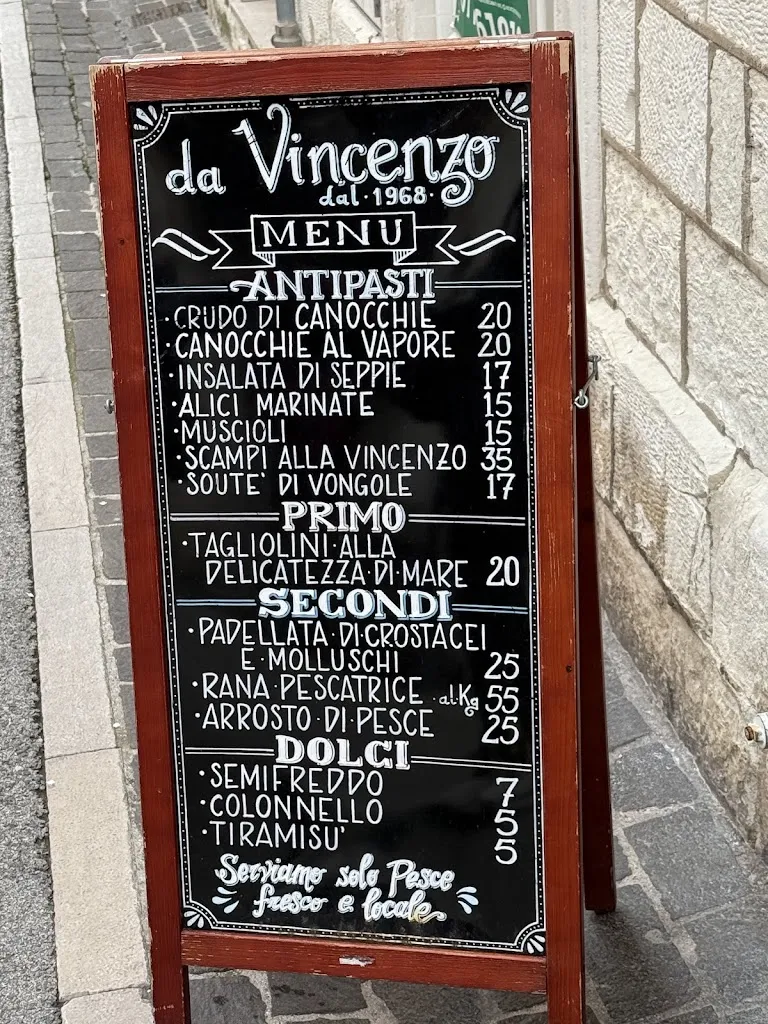 da Vincenzo
dal·1968·
MENU
ANTIPASTI
·CRUDO DI CANOCCHIE 20
·CANOCCHIE AL VAPORE 20
·INSALATA DI SEPPIE 17
·ALICI MARINATE 15
·MUSCIOLI 15
·SCAMPI ALLA VINCENZO 35
·SOUTE' DI VONGOLE 17
PRIMO
·TAGLIOLINI·ALLA
DELICATEZZA·DI·MARE 20
SECONDI
·PADELLATA·DI·CROSTACEI
E·MOLLUSCHI 25
·RANA·PESCATRICE·al·Kg 55
·ARROSTO·DI·PESCE 25
DOLCI
·SEMIFREDDO 7
·COLONNELLO 5
·TIRAMISU' 5
Serviamo solo Pesce
fresco e locale